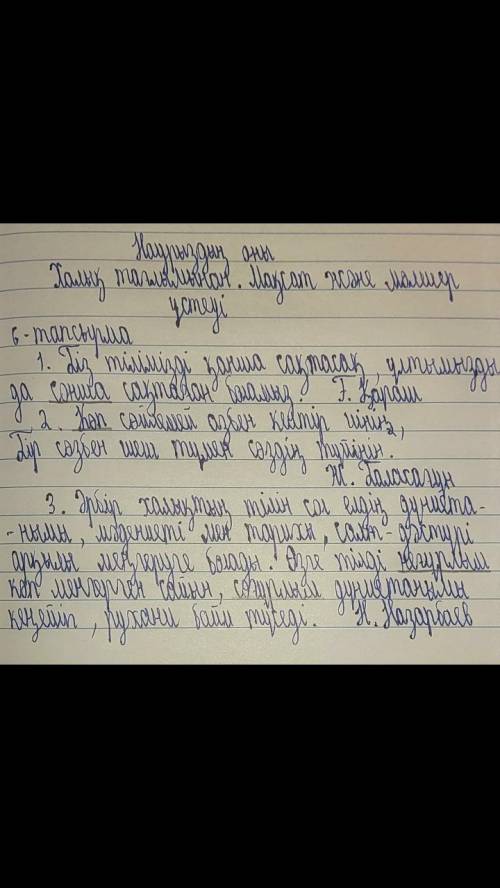 Наурыздың оны
Халық тағлымынан. Мақсат және мөлшер
үстеуі
6-тапсырма
1. Біз тілімізді қанша сақтасақ, ұлтымызды
да сонша сақтаған боламыз. Ғ. Қараш
2. Көп сөйлемей азбен кептір шініңз,
Бір сөзбен шеш түмен сөздің түйінін.
Ж. Баласағұн
3. Әрбір халықтың тілін сол елдің дүниета-
-нымы, мәдениеті мен тарихы, салт-дәстүрі
арқылы меңгеруге болады. Өзге тілді неғұрлым
көп меңгерген сайын, соғұрлым дүниетанымы
кеңейіп, рухани байи түседі. Н. Назарбаев